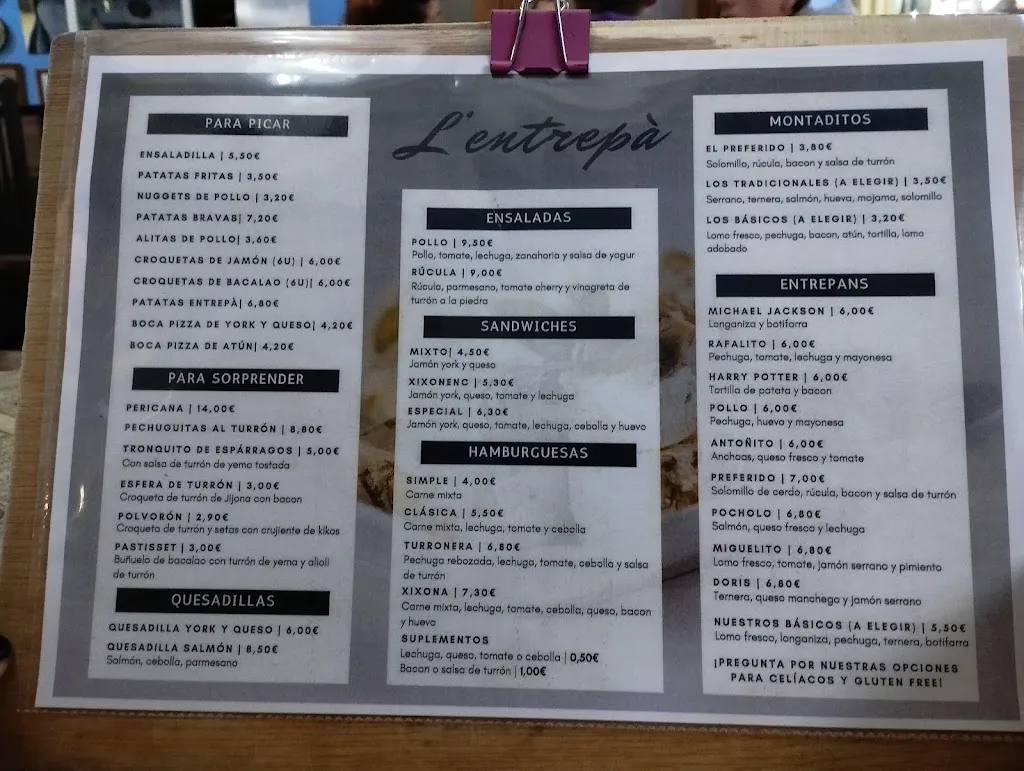 L'entrepà
PARA PICAR
ENSALADILLA | 5,50€
PATATAS FRITAS | 3,50€
NUGGETS DE POLLO | 3,20€
PATATAS BRAVAS| 7,20€
ALITAS DE POLLO| 3,60€
CROQUETAS DE JAMÓN (6U) | 6,00€
CROQUETAS DE BACALAO (6U)| 6,00€
PATATAS ENTREPÀ| 6,80€
BOCA PIZZA DE YORK Y QUESO| 4,20€
BOCA PIZZA DE ATÚN| 4,20€
PARA SORPRENDER
PERICANA | 14,00€
PECHUGUITAS AL TURRÓN | 8,80€
TRONQUITO DE ESPÁRRAGOS | 5,00€
Con salsa de turrón de yema tostada
ESFERA DE TURRÓN | 3,00€
Croqueta de turrón de Jijona con bacon
POLVORÓN | 2,90€
Croqueta de turrón y setas con crujiente de kikos
PASTISSET | 3,00€
Buñuelo de bacalao con turrón de yema y alioli
de turrón
QUESADILLAS
QUESADILLA YORK Y QUESO | 6,00€
QUESADILLA SALMÓN | 8,50€
Salmón, cebolla, parmesano
ENSALADAS
POLLO | 9,50€
Pollo, tomate, lechuga, zanahoria y salsa de yogur
RÚCULA | 9,00€
Rúcula, parmesano, tomate cherry y vinagreta de
turrón a la piedra
SANDWICHES
MIXTO| 4,50€
Jamón york y queso
XIXONENC | 5,30€
Jamón york, queso, tomate y lechuga
ESPECIAL | 6,30€
Jamón york, queso, tomate, lechuga, cebolla y huevo
HAMBURGUESAS
SIMPLE | 4,00€
Carne mixta
CLÁSICA | 5,50€
Carne mixta, lechuga, tomate y cebolla
TURRONERA | 6,80€
Pechuga rebozada, lechuga, tomate, cebolla y salsa
de turrón
XIXONA | 7,30€
Carne mixta, lechuga, tomate, cebolla, queso, bacon
y huevo
SUPLEMENTOS
Lechuga, queso, tomate o cebolla | 0,50€
Bacon o salsa de turrón | 1,00€
MONTADITOS
EL PREFERIDO | 3,80€
Solomillo, rúcula, bacon y salsa de turrón
LOS TRADICIONALES (A ELEGIR) | 3,50€
Serrano, ternera, salmón, hueva, mojama, solomillo
LOS BÁSICOS (A ELEGIR) | 3,20€
Lomo fresco, pechuga, bacon, atún, tortilla, lomo
adobado
ENTREPANS
MICHAEL JACKSON | 6,00€
Longaniza y botifarra
RAFALITO | 6,00€
Pechuga, tomate, lechuga y mayonesa
HARRY POTTER | 6,00€
Tortilla de patata y bacon
POLLO | 6,00€
Pechuga, hueva y mayonesa
ANTOÑITO | 6,00€
Anchoas, queso fresco y tomate
PREFERIDO | 7,00€
Solomillo de cerdo, rúcula, bacon y salsa de turrón
POCHOLO | 6,80€
Salmón, queso fresco y lechuga
MIGUELITO | 6,80€
Lomo fresco, tomate, jamón serrano y pimiento
DORIS | 6,80€
Ternera, queso manchego y jamón serrano
NUESTROS BÁSICOS (A ELEGIR) | 5,50€
Lomo fresco, longaniza, pechuga, ternera, botifarra
¡PREGUNTA POR NUESTRAS OPCIONES
PARA CELÍACOS Y GLUTEN FREE!